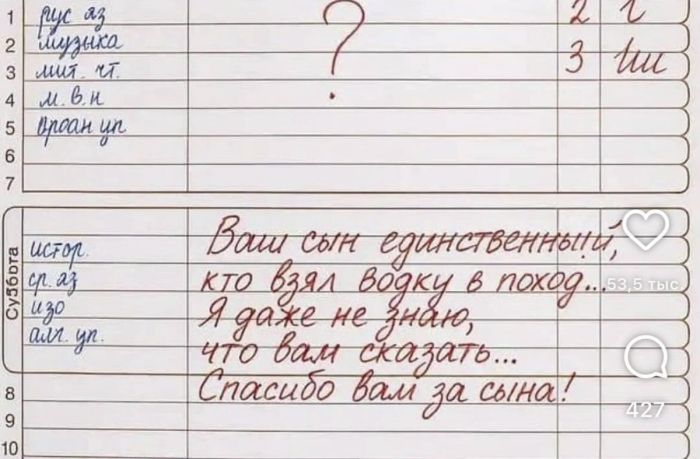 1 рус яз 2 г
2 музыка
3 лит. чт. 3
4 м. в. н
5 уп
6
7
Суббота
истор.
ср. яз
изо
алг. уп.
Ваш сын единственный,
кто взял водку в поход...
53,5 тыс.
Я даже не знаю,
что вам сказать...
Спасибо вам за сына!
8
9
10
427
?